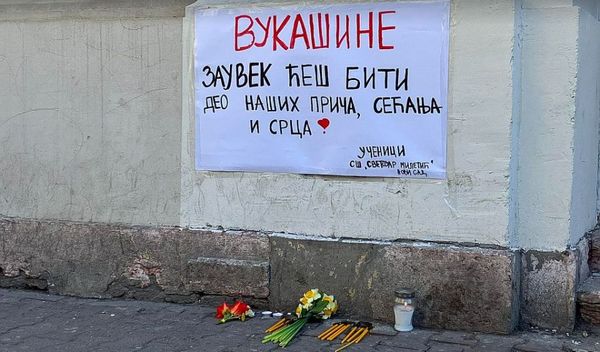 ВУКАШИНЕ
ЗАУВЕК ЋЕШ БИТИ
ДЕО НАШИХ ПРИЧА, СЕЋАЊА
И СРЦА
УЧЕНИЦИ
СШ „СВЕТОЗАР МИЛЕТИЋ“
НОВИ САД